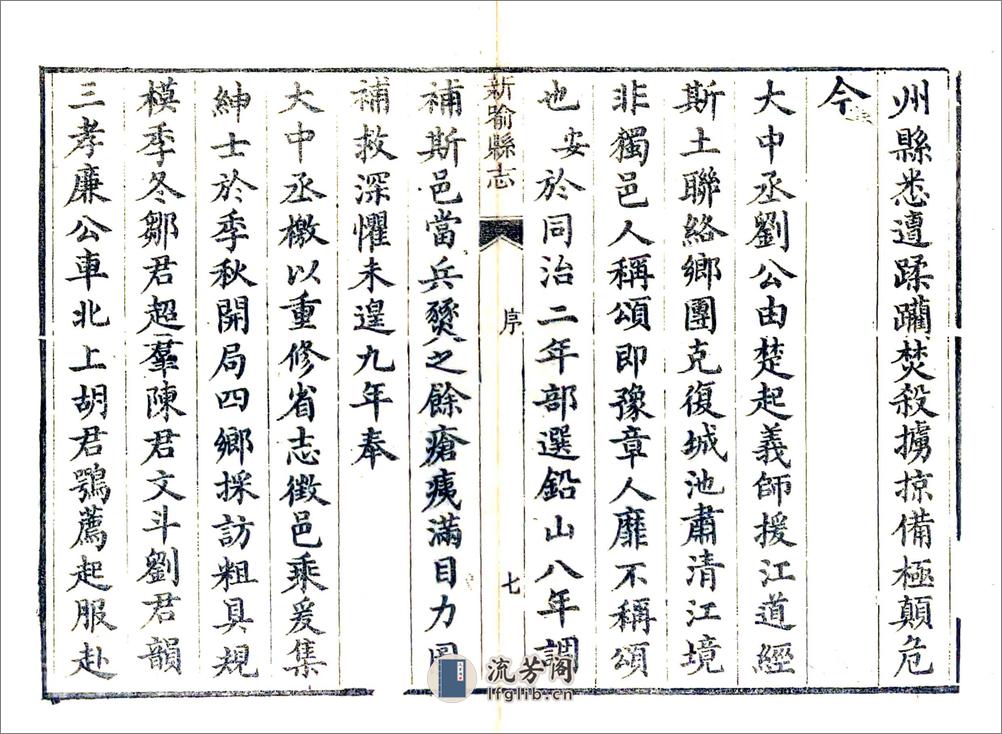 州縣悉遭蹂躪焚殺擄掠備極顛危
今
大中丞劉公由楚起義師援江道經
斯土聯絡鄉團克復城池肅清江境
非獨邑人稱頌即豫章人靡不稱頌
也安於同治二年部選鉛山八年調
新喻縣志
序
七
補斯邑當兵燹之餘瘡痍滿目力圖
補救深懼未遑九年奉
大中丞檄以重修省志徵邑乘爰集
紳士於季秋開局四鄉採訪粗具規
模季冬鄒君超羣陳君文斗劉君韻
三孝廉公車北上胡君鶚薦起服赴
流芳阁
lfglib.cn